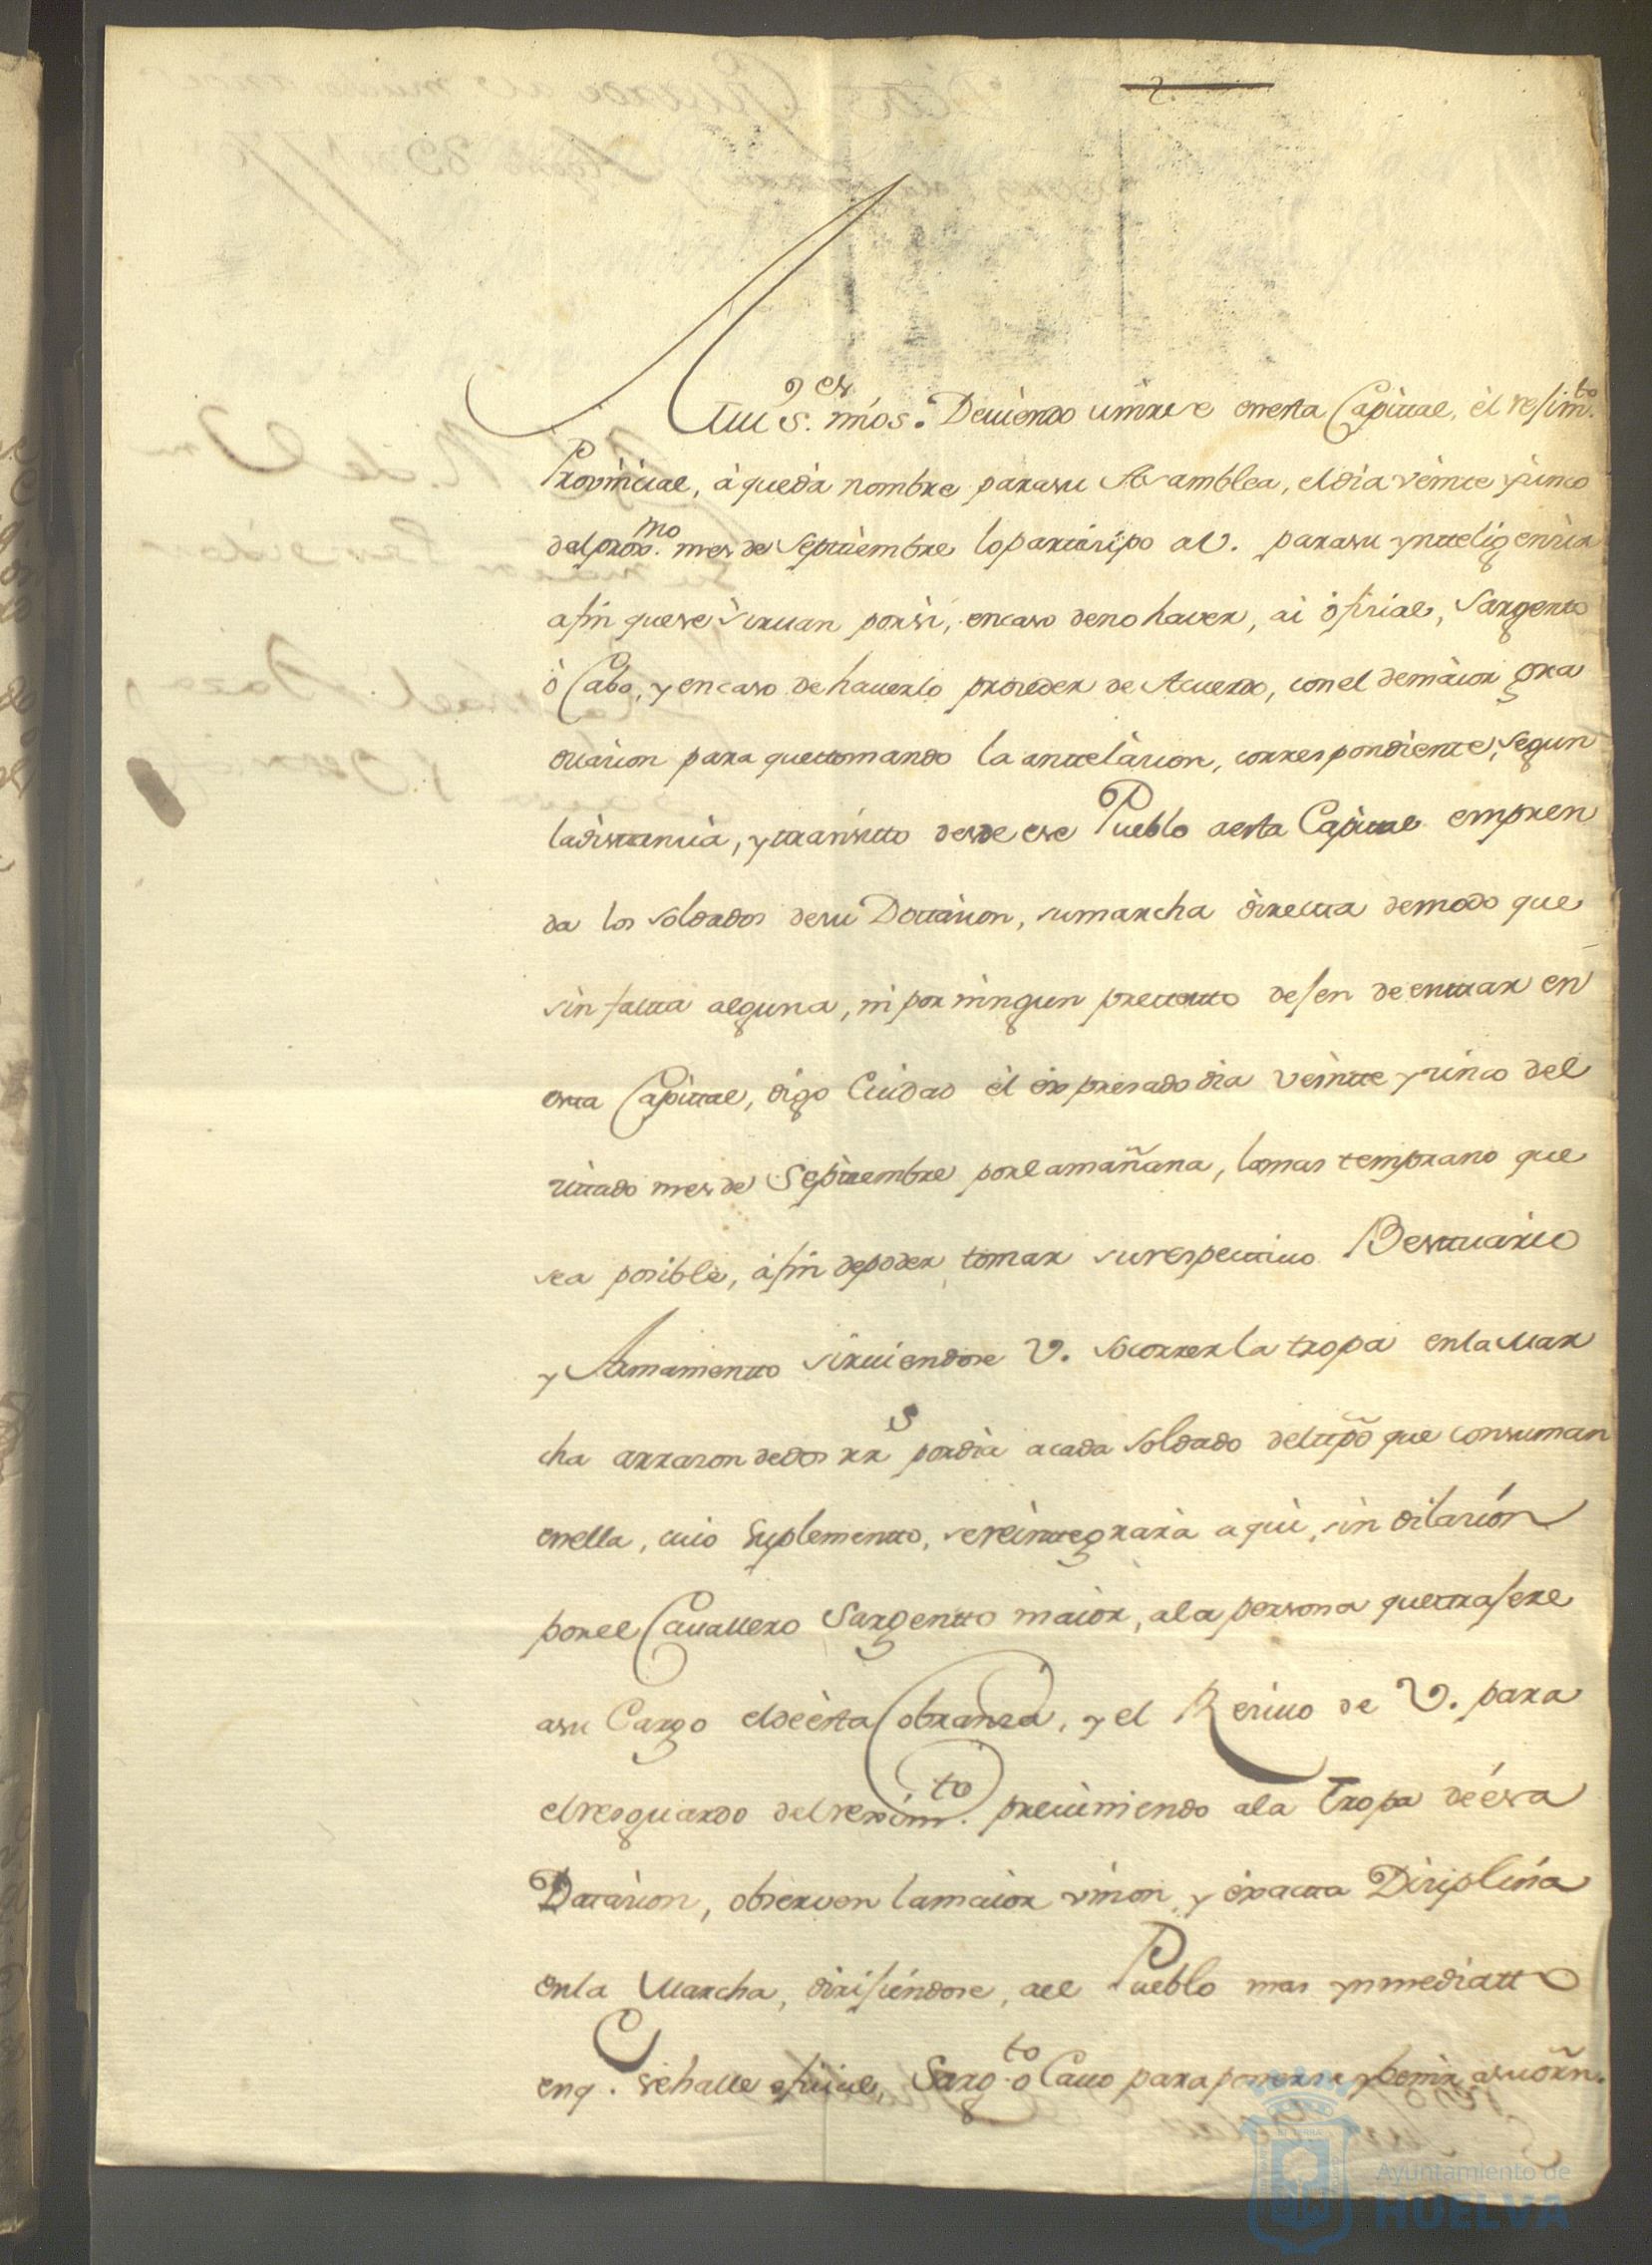 2.
Mui S.res mios. Deviendo unirse en esta Capittal, el rejim.to
Provincial, à quedà nombre para su Asamblea, el dia veinte y cinco
del prox.mo mes de Septtiembre lo parttisipo a V. para su ynttelig encia
afin que se sirvan por si, en caso de no haver, ai ofisial, Sargento
ò Cabo, y en caso de haverlo proceder de Acuerdo, con el de maior gra
duacion para que ttomando la anttelacion, correspondiente, segun
la disttancia, y ttransitto desde ese Pueblo a esta Capittal empren
da los soldados de su Dottacion, su marcha directta de modo que
sin faltta alguna, ni por ningun prettextto dejen de enttrar en
estta Capittal, digo Ciudad el expresado dia veintte y cinco del
cittado mes de Septtiembre por la mañana, lo mas temprano que
sea posible, afin de poder tomar su respecttivo Besttuario
y Armamentto sirviendose V. socorrer la tropa en la Mar
cha arrason de dos rr.s por dia a cada Soldado del ttpõ que consuman
en ella, cuio Suplementto, se reinttegrarà aqui, sin dilacion
por el Cavallero Sargentto maior, ala persona que ttrajere
a su Cargo el de esta Cobranza, y el Recivo de V. para
el resguardo del rexim.to previniendo ala Tropa de esa
Dotacion, observen la maior union, y exactta Disiplina
en la Marcha, dirijiendose, al Pueblo mas ynmediatto
en q. se halle ofisial, Sarg.to o Cavo para ponerse y benir a su orn.
Ayuntamiento de
HUELVA